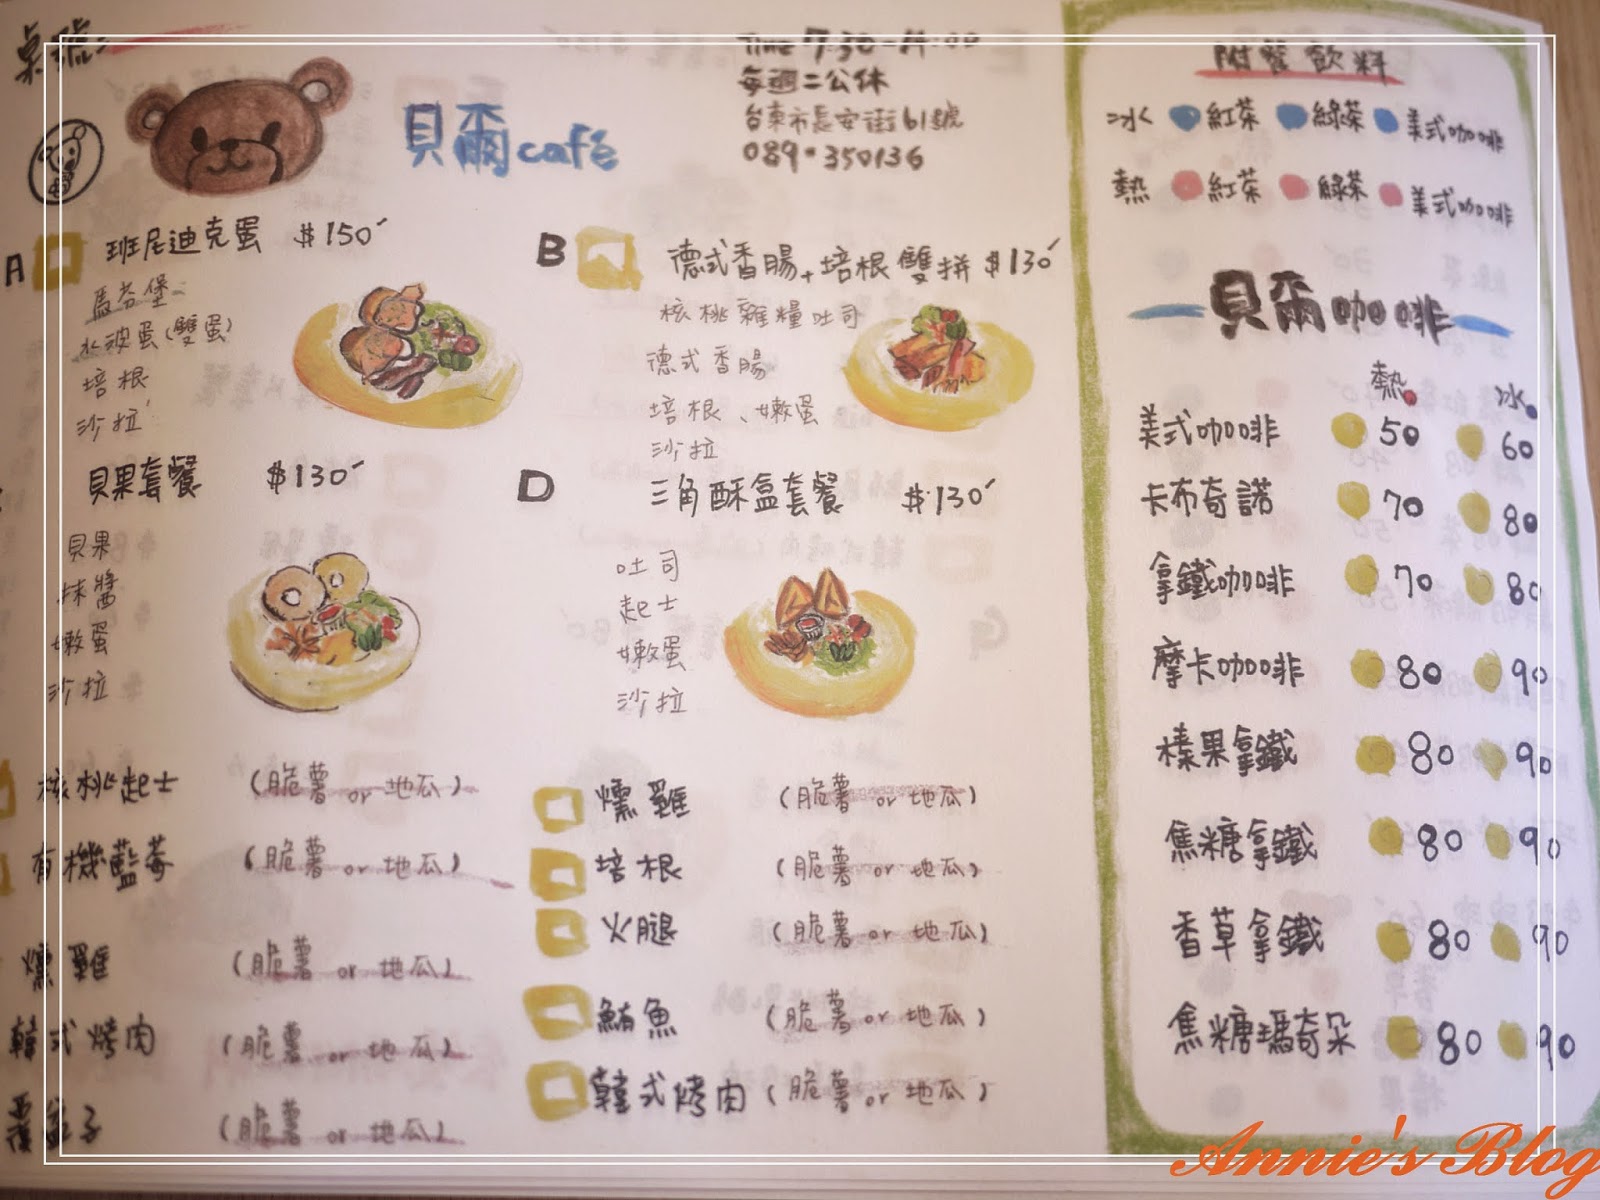 桌號:
Time 7:30-14:00
每週二公休
台東市長安街61號
089·350136
貝爾café
A 班尼迪克蛋 $150
馬芬堡
水波蛋(雙蛋)
培根
沙拉
B 德式香腸+培根雙拼 $130
核桃雜糧吐司
德式香腸
培根、嫩蛋
沙拉
貝果套餐 $130
貝果
抹醬
嫩蛋
沙拉
D 三角酥盒套餐 $130
吐司
起士
嫩蛋
沙拉
核桃起士 (脆薯 or 地瓜)
有機藍莓 (脆薯 or 地瓜)
燻雞 (脆薯 or 地瓜)
韓式烤肉 (脆薯 or 地瓜)
覆盆子 (脆薯 or 地瓜)
燻雞 (脆薯 or 地瓜)
培根 (脆薯 or 地瓜)
火腿 (脆薯 or 地瓜)
鮪魚 (脆薯 or 地瓜)
韓式烤肉 (脆薯 or 地瓜)
附餐飲料
冰 紅茶 綠茶 美式咖啡
熱 紅茶 綠茶 美式咖啡
貝爾咖啡
熱 冰
美式咖啡 50 60
卡布奇諾 70 80
拿鐵咖啡 70 80
摩卡咖啡 80 90
榛果拿鐵 80 90
焦糖拿鐵 80 90
香草拿鐵 80 90
焦糖瑪奇朵 80 90
Annie's Blog